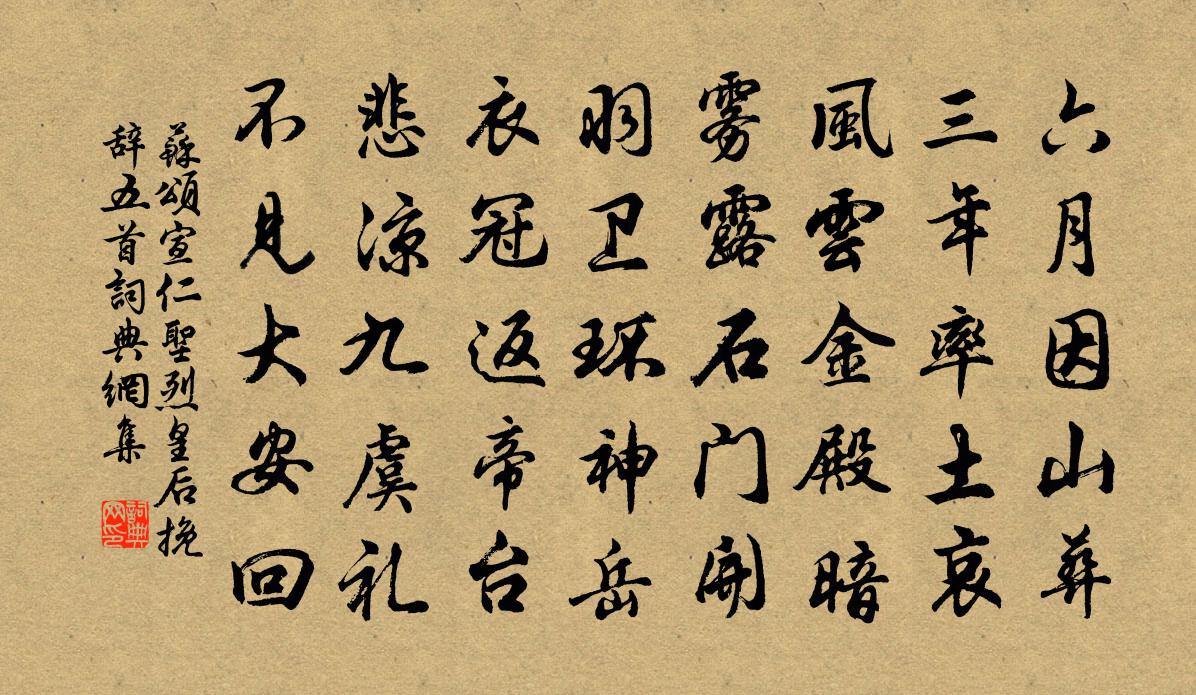 六月因山葬
三年率土哀
風雲金殿暗
雾露石门開
羽卫环神岳
衣冠返帝台
悲凉九虞礼
不見大安回
蘇頌宣仁聖烈皇后挽
辞五首詞典網集
詞典网印